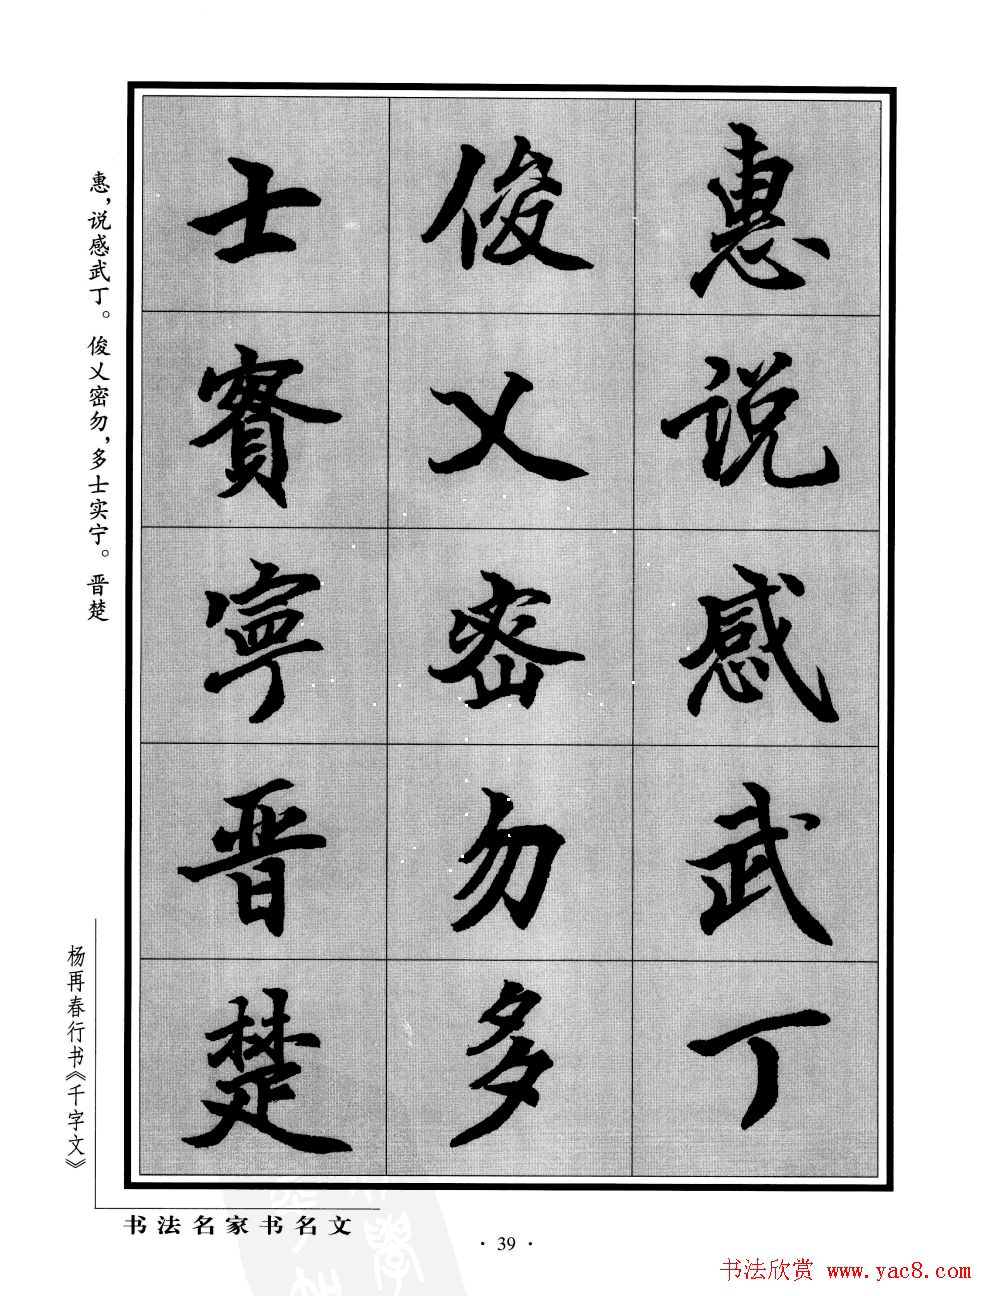 惠说感武丁
俊乂密勿多
士實寧晋楚
惠，说感武丁。俊乂密勿，多士实宁。晋楚
杨再春行书《千字文》
书法名家书名文
·39·
书法欣赏 www.yac8.com